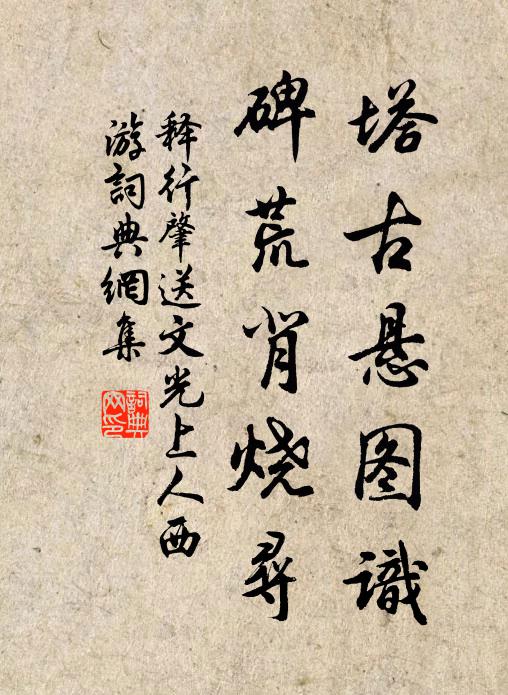 塔古悬图識
碑荒背烧尋
释行肇送文光上人西
游詞典網集
詞典
网印